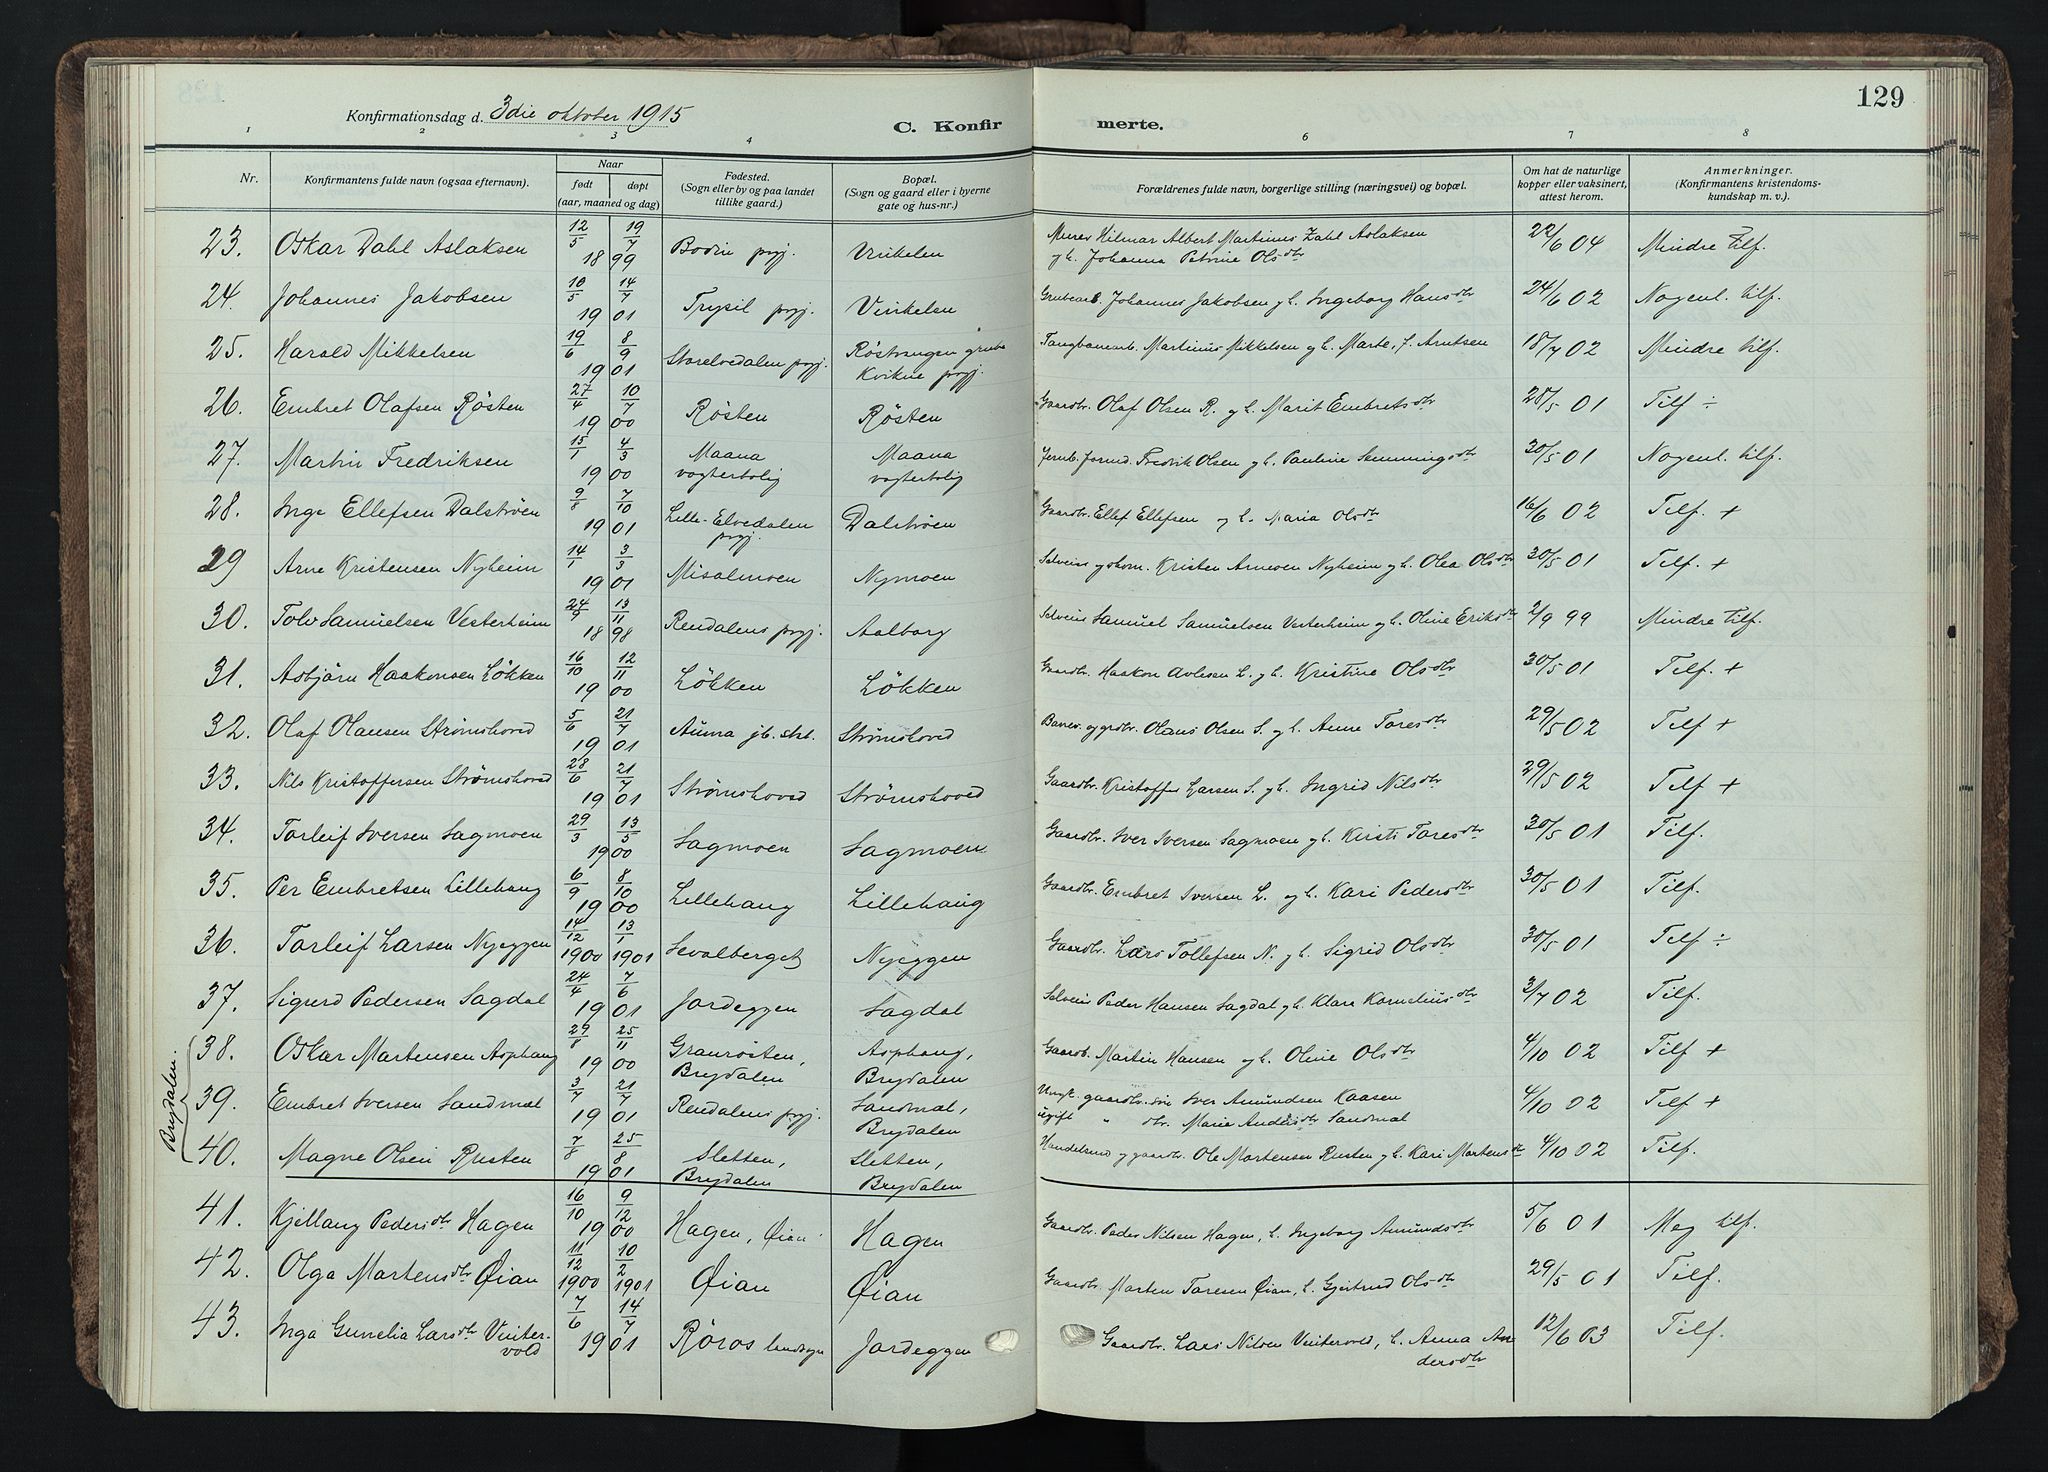 129
Konfirmationsdag d. 3die oktober 1915
C. Konfirmerte.
1 2 3 4 6 7 8
Nr. Konfirmantens fulde navn (ogsaa efternavn). Naar født døpt (aar, maaned og dag) Fødested. (Sogn eller by og paa landet tillike gaard.) Bopæl. (Sogn og gaard eller i byerne gate og hus-nr.) Forældrenes fulde navn, borgerlige stilling (næringsvei) og bopæl. Om hat de naturlige kopper eller vaksinert, attest herom. Anmerkninger. (Konfirmantens kristendoms-kundskap m. v.).
23. Oskar Dahl Aslaksen 12/5 19/7 1899 Bodin prgj. Vinkelen Murer Hilmar Albert Martinus Zahl Aslaksen
og h. Johanna Petrine Olsdtr 22/6 04 Mindre tilf.
24. Johannes Jakobsen 10/5 14/7 1901 Trysil prgj. Vinkelen Grubearb. Johannes Jakobsen og h. Ingeborg Hansdtr 24/6 02 Nogenl. tilf.
25. Harald Mikkelsen 19/6 8/9 1901 Storelvedalen prgj. Røstvangen grube
Kvikne prgj. Taugbanearb. Martinus Mikkelsen og h. Marte, f. Arntsen 18/7 02 Mindre tilf.
26. Embret Olafsen Røsten 27/4 10/7 1900 Røsten Røsten Gaardbr. Olaf Olsen R. og h. Marit Embretsdtr 28/5 01 Tilf ÷
27. Martin Fredriksen 15/1 4/3 1900 Maana
vogterbolig Maana
vogterbolig Jernb.formd. Fredrik Olsen og h. Pauline Semmingsdtr 30/5 01 Nogenl. tilf.
28. Inge Ellefsen Dalstrøen 9/8 7/10 1901 Lille-Elvedalen
prgj. Dalstrøen Gaardbr. Ellef Ellefsen og h. Maria Olsdtr 16/6 02 Tilf. +
29 Arne Kristensen Nyheim 14/1 3/3 1901 Misalmoen Nymoen Selveier og skom. Kristen Arnesen Nyheim og h. Olea Olsdtr 30/5 01 Tilf. +
30. Tolv Samuelsen Vesterheim 24/9 13/11 1898 Rendalens prgj. Aalborg Selveier Samuel Samuelsen Vesterheim og h. Oline Eriksdtr 2/9 99 Mindre tilf.
31. Asbjørn Haakonsen Løkken 16/10 12/11 1900 Løkken Løkken Gaardbr. Haakon Avlesen L. og h. Kristine Olsdtr 30/5 01 Tilf +
32. Olaf Olausen Strømshoved 5/6 21/7 1901 Auma jb. st. Strømshoved Banev. og grdbr. Olaus Olsen S. og h. Anne Toresdtr 29/5 02 Tilf +
33. Nils Kristoffersen Strømshoved 28/6 21/7 1901 Strømshoved Strømshoved Gaardbr. Kristoffer Larsen S. og h. Ingrid Nilsdtr 29/5 02 Tilf +
34. Torleif Iversen Sagmoen 29/3 13/5 1900 Sagmoen Sagmoen Gaardbr. Iver Iversen Sagmoen og h. Kirsti Toresdtr 30/5 01 Tilf.
35. Per Embretsen Lillehaug 6/9 8/10 1900 Lillehaug Lillehaug Gaardbr. Embret Iversen L. og h. Kari Pedersdtr 30/5 01 Tilf.
36. Torleif Larsen Nyeggen 14/12 1900 13/1 1901 Sevalberget Nyeggen Gaardbr. Lars Tollefsen N. og h. Sigrid Olsdtr 30/5 01 Tilf ÷
37. Sigurd Pedersen Sagdal 24/4 7/6 1901 Jordeggen Sagdal Selveier Peder Hansen Sagdal og h. Klara Korneliusdtr 3/7 02 Tilf.
Brydalen.
38. Oskar Martensen Asphaug 29/8 25/11 1900 Graurøsten,
Brydalen Asphaug,
Brydalen Gaardb. Martin Hansen og h. Oline Olsdtr 4/10 02 Tilf +
39. Embret Iversen Sandmæl 3/7 21/7 1901 Rendalens prgj. Sandmæl,
Brydalen Ungk. gaardbr.søn Iver Amundsen Kaasen
ugift " dtr. Marie Andersdtr Sandmæl 4/10 02 Tilf +
40. Magne Olsen Rusten 7/8 25/8 1901 Sletten,
Brydalen Sletten,
Brydalen Handelsmd og gaardbr. Ole Martensen Rusten og h. Kari Martensdtr 4/10 02 Tilf.
41. Kjellaug Pedersdtr Hagen 16/10 9/12 1900 Hagen, Øian Hagen Gaardbr. Peder Nilsen Hagen, h. Ingeborg Amundsdtr 5/6 01 Meg. tilf.
42. Olga Martensdtr Øian 11/12 1900 10/2 1901 Øian Øian Gaardbr. Morten Toresen Øian, h. Gjertrud Olsdtr 29/5 01 Tilf.
43. Inga Gunelia Larsdtr Vinter-
vold 7/6 14/7 1901 Røros landsogn Jordeggen Gaardbr. Lars Nilsen Vintervold, h. Anna An
dersdtr 12/6 03 Tilf.